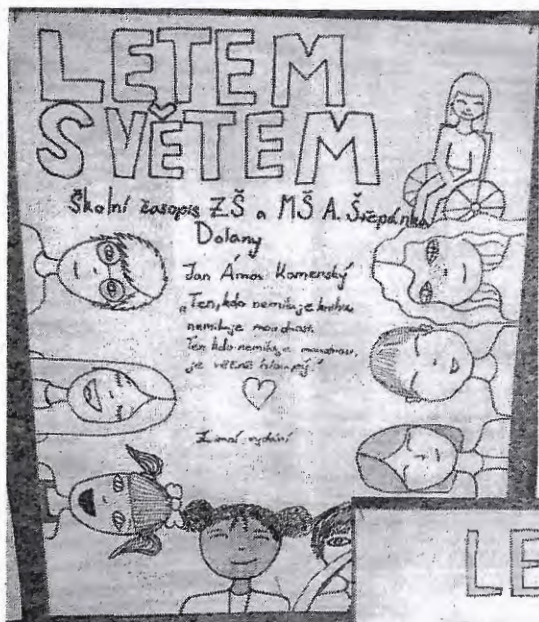 LETEM
SVĚTEM
Školní časopis ZŠ a MŠ A. Štěpánka
Dolany
Jan Ámos Komenský
„Ten, kdo nemiluje knihu,
nemiluje moudrost.
Ten, kdo nemiluje moudrost,
je věčně hloupý."
Zimní vydání
LE